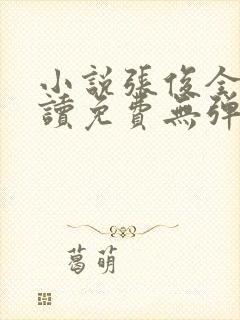 小說張俊全
讀免費無彈
葛萌